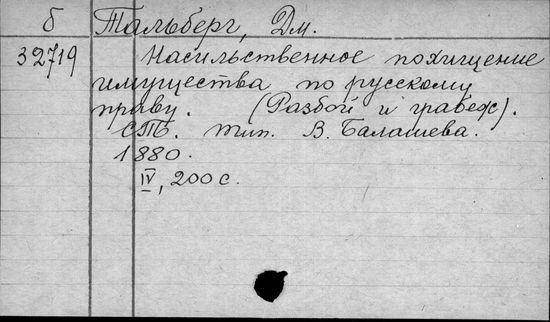 б Тальберг, Дм.
32719 Насильственное похищение
имущества по русскому
праву. (Разбой и грабеж).
СПб. тип. В. Балашева.
1880.
IV, 200 с.